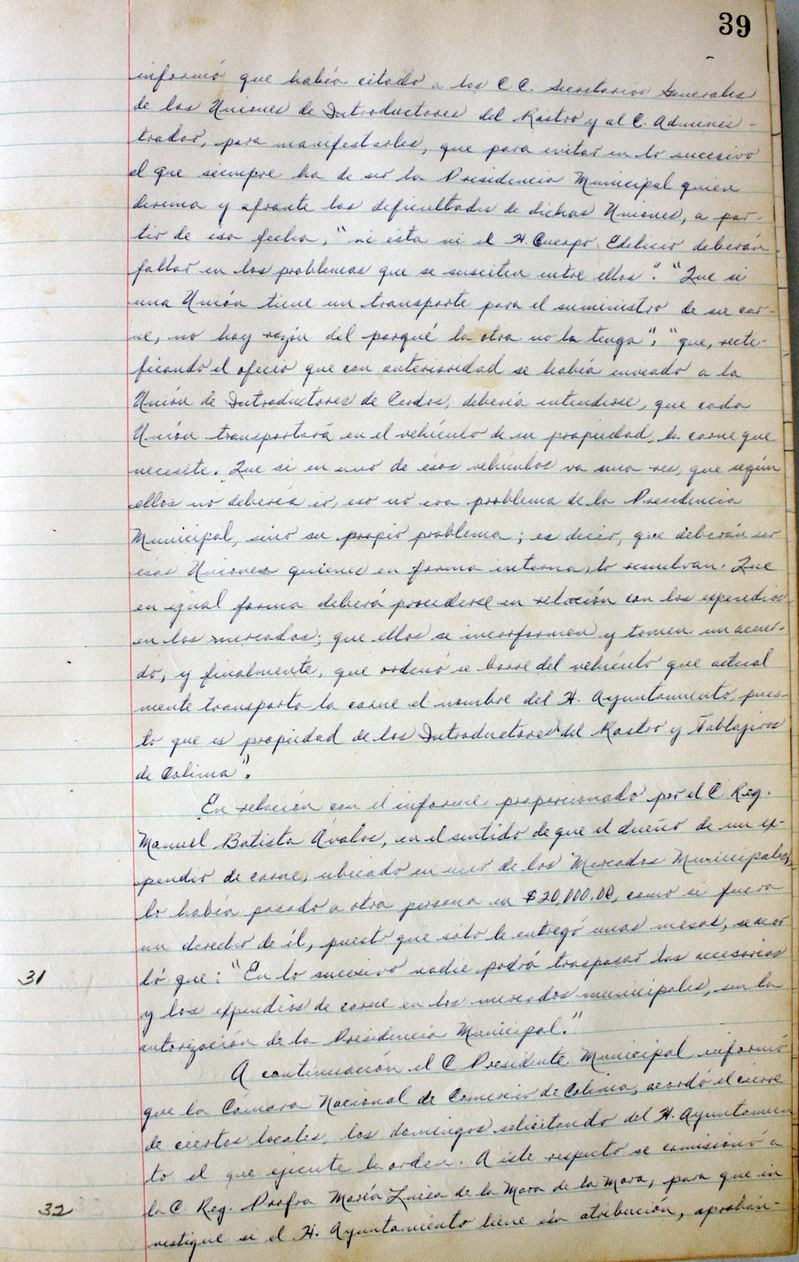 39
informó que había citado a los C.C. Secretarios Generales
de las Uniones de Introductores del Rastro y al C. Adminis-
trador, para manifestarles, que para evitar en lo sucesivo
el que siempre ha de ser la Presidencia Municipal quien
dirima y afronte las dificultades de dichas Uniones, a par-
tir de esa fecha, "ni ésta ni el H. Cuerpo Edilicio deberán
fallar en los problemas que se susciten entre ellos". "Que si
una Unión tiene un transporte para el suministro de su car-
ne, no hay razón del porqué la otra no la tenga"; "que, recti-
ficando el oficio que con anterioridad se había enviado a la
Unión de Introductores de Cerdos, debería entenderse, que cada
Unión transportará en el vehículo de su propiedad, la carne que
necesite. Que si en uno de esos vehículos va una res, que según
ellos no debería ir, eso no era problema de la Presidencia
Municipal, sino su propio problema; es decir, que deberán ser
esas Uniones quienes en forma interna, lo resuelvan. Que
en igual forma deberá procederse en relación con los expendios
en los mercados; que ellos se inconformen y tomen un acuer-
do, y finalmente, que ordenó se borre del vehículo que actual
mente transporta la carne el nombre del H. Ayuntamiento, pues-
to que es propiedad de los Introductores del Rastro y Tablajeros
de Colima".
En relación con el informe proporcionado por el C. Reg.
Manuel Batista Avalos, en el sentido de que el dueño de un ex-
pendio de carne, ubicado en uno de los Mercados Municipales,
lo había pasado a otra persona en $20,000.00, como si fuera
un derecho de él, puesto que sólo le entregó unas mesas, se acor
31 dó que: "En lo sucesivo nadie podrá traspasar las accesorias
y los expendios de carne en los mercados municipales, sin la
autorización de la Presidencia Municipal."
A continuación el C Presidente Municipal informó
que la Cámara Nacional de Comercio de Colima, acordó el cierre
de ciertos locales, los domingos, solicitando del H. Ayuntamien
to el que ejecute la orden. A éste respecto se comisionó a
32 la C Reg. Profra María Luisa de la Mora de la Mora, para que in
vestigue si el H. Ayuntamiento tiene esa atribución, aprobán-